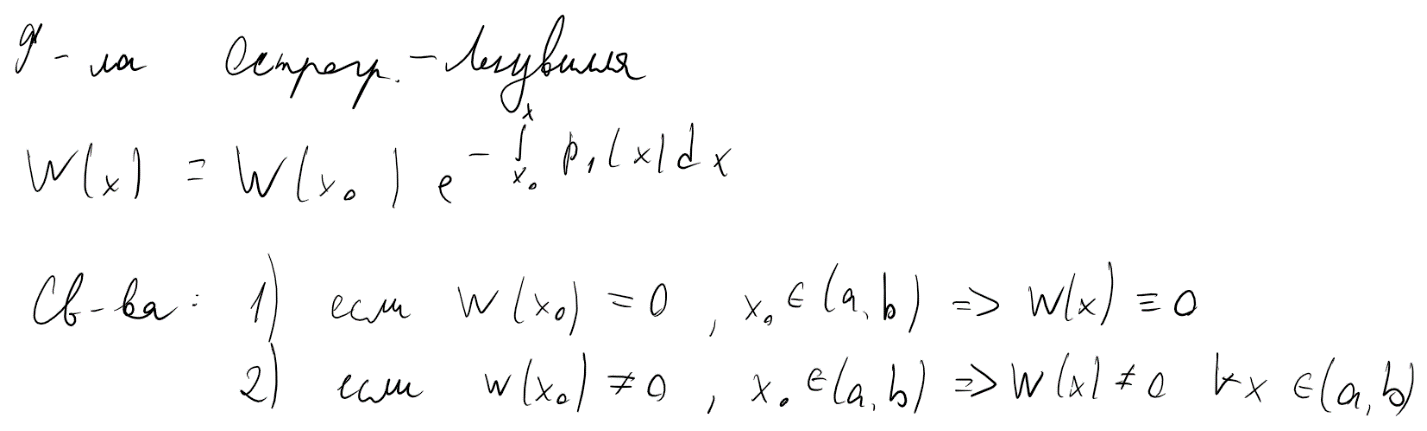 ф-ла Остроgр.-Лиувилля
W(x) = W(x₀) e^{-∫_{x₀}^{x} p₁(x)dx}
Св-ва: 1) если W(x₀) = 0 , x₀ ∈ (a, b) => W(x) ≡ 0
2) если W(x₀) ≠ 0 , x₀ ∈ (a, b) => W(x) ≠ 0 ∀x ∈ (a, b)